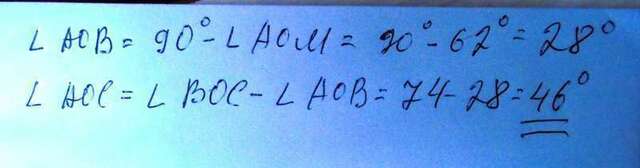 ∠ AOB = 90° - ∠ AOM = 90° - 62° = 28°
∠ AOC = ∠ BOC - ∠ AOB = 74 - 28 = 46°